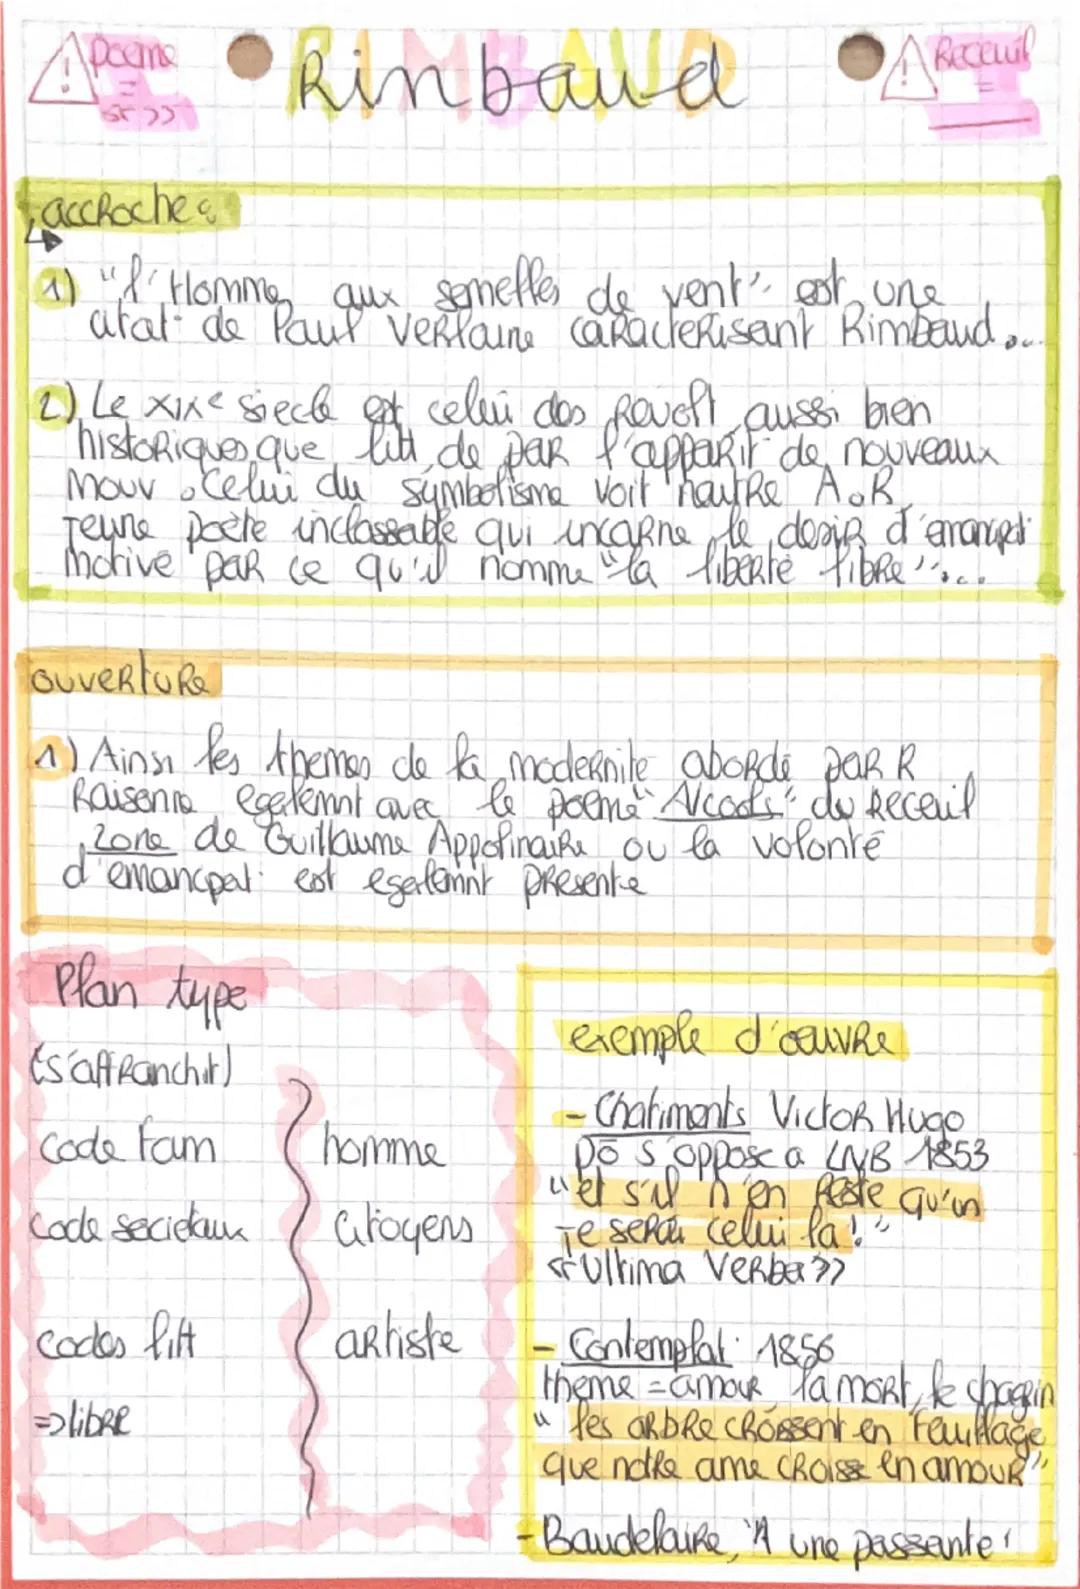 Poeme
=
« »
RIMBAUD
Rinbaud
Receuil
=
accroche :
1) "l'Homme aux semelles de vent" est une
citat° de Paul Verlaine caracterisant Rimbaud...
2) Le XIXe siecle est celui des Revolt aussi bien
historiques que litt, de par l'apparit° de nouveaux
mouv. Celui du symbolisme voit naitre A.R
Jeune poète inclassable qui incarne le desir d'emancipat°
motivé par ce qu'il nomme "la liberté libre"...
ouverture
1) Ainsi les themes de la modernite abordé par R
Raisonne egalemnt avec le poeme "Alcools" du Receuil
Zone de Guillaume Appolinaire ou la volonté
d'emancpat° est egalemnt presente
Plan type
(s'affranchir)
code fam
homme
Code societaux
Citoyens
codes litt
artiste
=> libre
exemple d'œuvre
- Chatiments Victor Hugo
Dō s'oppose a LNB 1853
"et s'il n'en Reste qu'un
Je serai celui la !"
« Ultima Verba »
- Contemplat° 1856
theme = amour, la mort, le chagrin
"les arbre croissent en feuillage
que notre ame croisse en amour"
- Baudelaire, "A une passante"